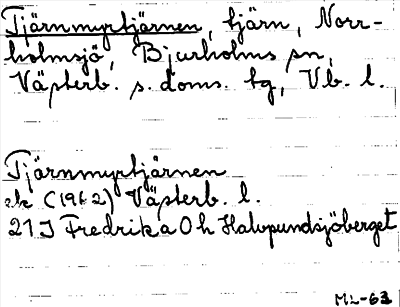 Tjärnmyrtjärnen, tjärn, Norr-
holmsjö, Bjurholms sn,
Västerb. s. doms. tg, Vb. l.
Tjärnmyrtjärnen
ek (1962) Västerb. l.
21 J Fredrika 0 h Halvpundsjöberget
ML-63